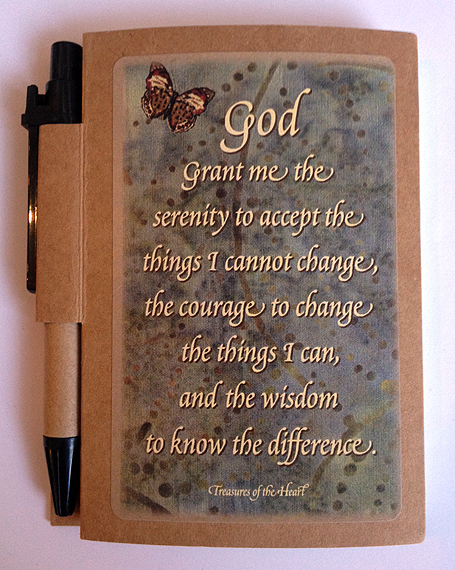 God
Grant me the
serenity to accept the
things I cannot change,
the courage to change
the things I can,
and the wisdom
to know the difference.
Treasures of the Heart